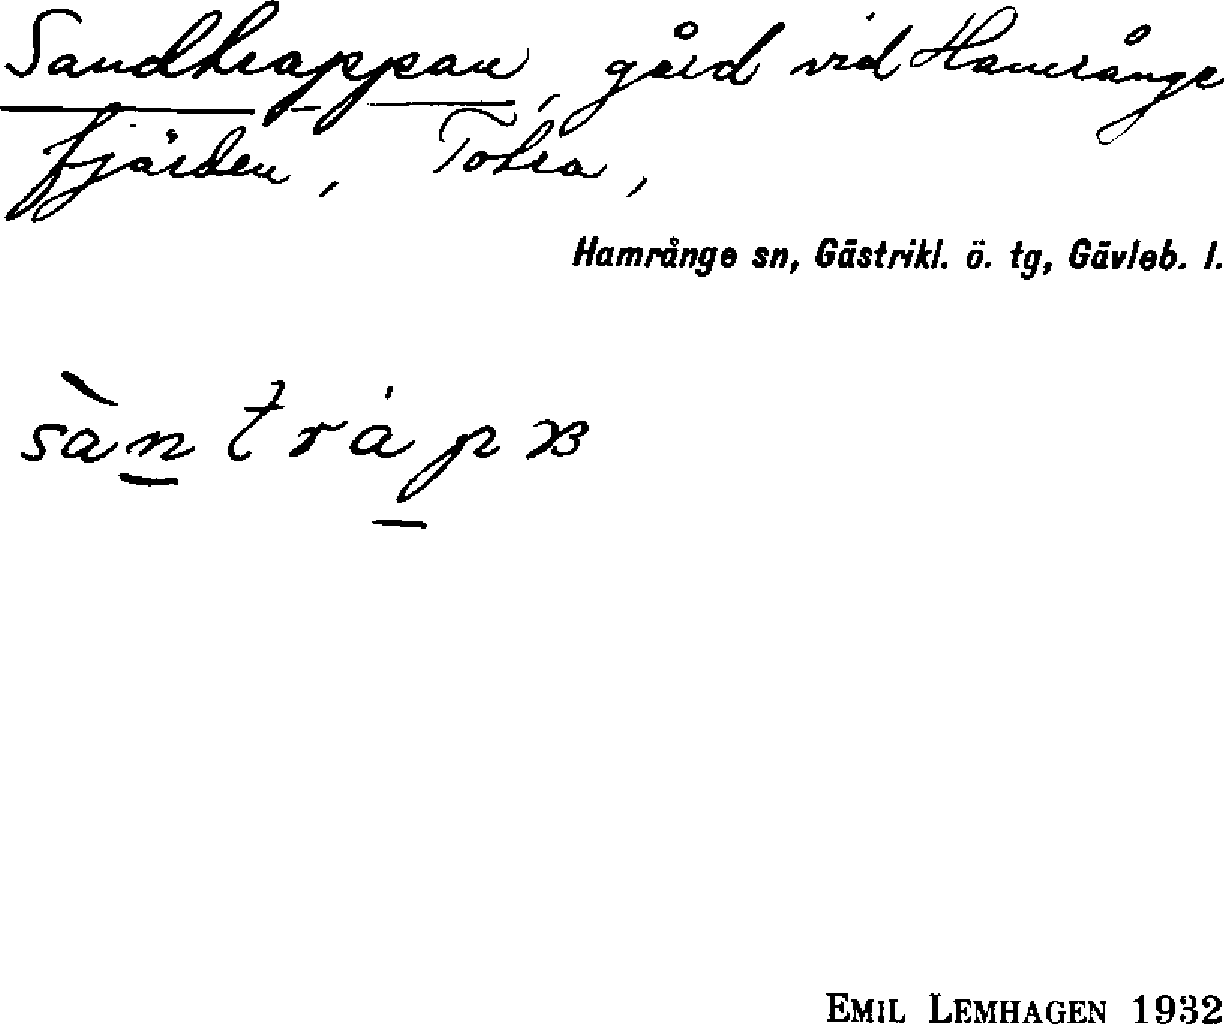 Sandtrappan, gård vid Hamrånge
fjärden, Totra,
Hamrånge sn, Gästrikl. ö. tg, Gävleb. l.
sàn tráp
EMIL LEMHAGEN 1932